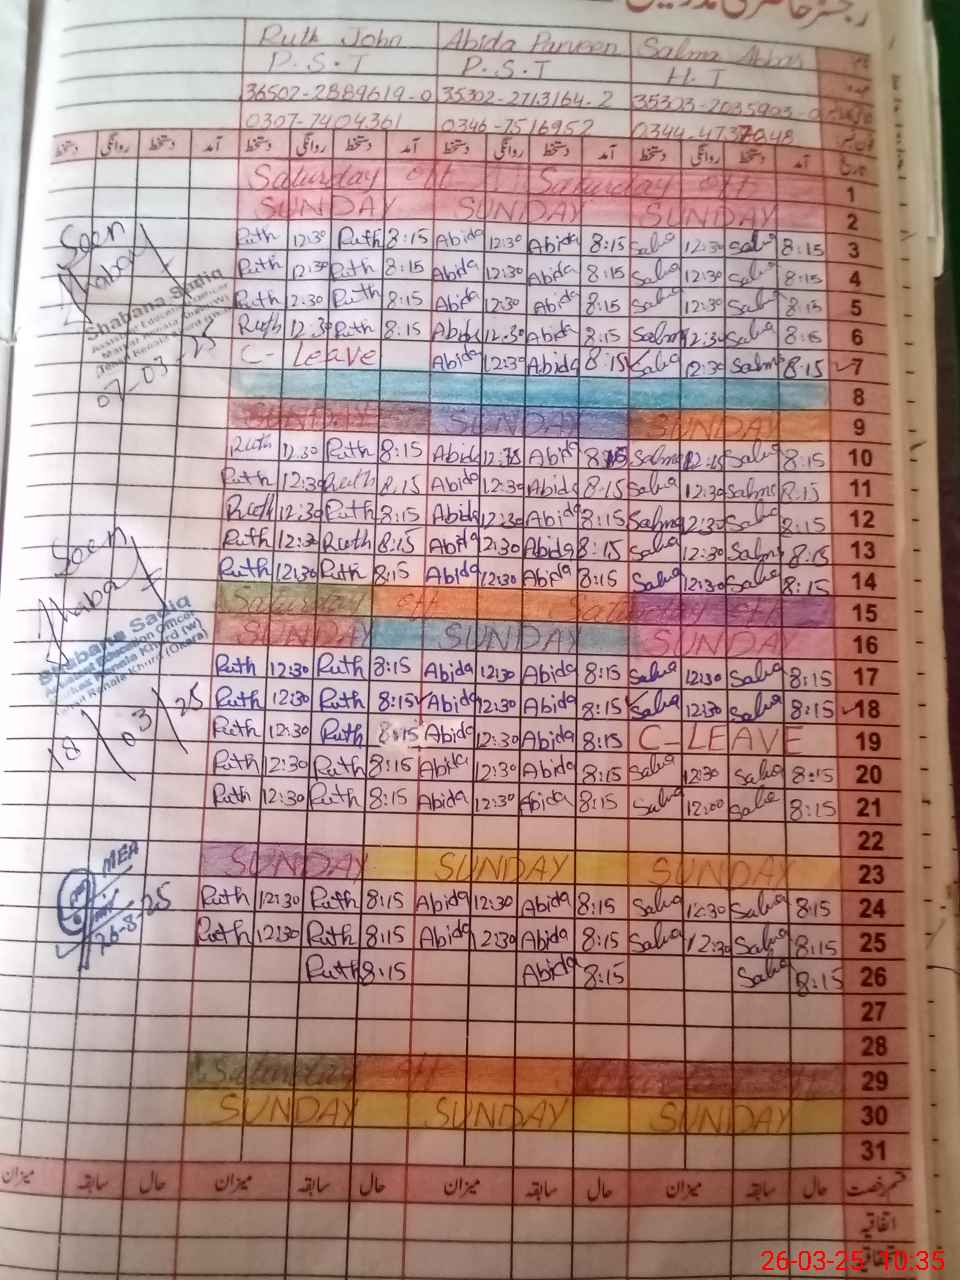 رجسٹر حاضری مدرسین
Ruth John Abida Parveen Salma Abbas
P.S.T P.S.T H.T
36502-2889619-0 35302-2713164-2
0307-7404361 0346-7516952 0344-4737048
دستخط روانگی دستخط آمد دستخط روانگی دستخط آمد دستخط روانگی دستخط آمد دستخط روانگی دستخط آمد تاریخ
Saturday off Saturday off 1
SUNDAY SUNDAY SUNDAY 2
Ruth 12:30 Ruth 8:15 Abida 12:30 Abida 8:15 Salma 12:30 Salma 8:15 3
Ruth 12:30 Ruth 8:15 Abida 12:30 Abida 8:15 Salma 12:30 Salma 8:15 4
Ruth 12:30 Ruth 8:15 Abida 12:30 Abida 8:15 Salma 12:30 Salma 8:15 5
Ruth 12:30 Ruth 8:15 Abida 12:30 Abida 8:15 Salma 12:30 Salma 8:15 6
C-Leave Abida 12:30 Abida 8:15 Salma 12:30 Salma 8:15 7
8
SUNDAY SUNDAY SUNDAY 9
Ruth 12:30 Ruth 8:15 Abida Abida 8:15 Salma 12:15 Salma 8:15 10
Ruth 12:30 Ruth 8:15 Abida 12:30 Abida 8:15 Salma 12:30 Salma 8:15 11
Ruth 12:30 Ruth 8:15 Abida 12:30 Abida 8:15 Salma 12:30 Salma 8:15 12
Ruth 12:30 Ruth 8:15 Abida 12:30 Abida 8:15 Salma 12:30 Salma 8:15 13
Ruth 12:30 Ruth 8:15 Abida 12:30 Abida 8:15 Salma 12:30 Salma 8:15 14
Saturday off Saturday off 15
SUNDAY SUNDAY SUNDAY 16
Ruth 12:30 Ruth 8:15 Abida 12:30 Abida 8:15 Salma 12:30 Salma 8:15 17
Ruth 12:30 Ruth 8:15 Abida 12:30 Abida 8:15 Salma 12:30 Salma 8:15 18
Ruth 12:30 Ruth 8:15 Abida 12:30 Abida 8:15 C-LEAVE 19
Ruth 12:30 Ruth 8:15 Abida 12:30 Abida 8:15 Salma 12:30 Salma 8:15 20
Ruth 12:30 Ruth 8:15 Abida 12:30 Abida 8:15 Salma 12:00 Salma 8:15 21
22
SUNDAY SUNDAY SUNDAY 23
Ruth 12:30 Ruth 8:15 Abida 12:30 Abida 8:15 Salma 12:30 Salma 8:15 24
Ruth 12:30 Ruth 8:15 Abida 12:30 Abida 8:15 Salma 12:30 Salma 8:15 25
Ruth 8:15 Abida 8:15 Salma 8:15 26
27
28
Saturday off Saturday off 29
SUNDAY SUNDAY SUNDAY 30
31
میزان سابقہ حال میزان سابقہ حال میزان سابقہ حال میزان سابقہ حال قسم رخصت
اتفاقیہ
Seen
Shabana Sadia
Assistant Education Officer
07-03-25
Seen
Shabana Sadia
Assistant Education Officer
Markaz Renala Khurd (W)
Tehsil Renala Khurd (Okara)
18/03/25
MEA
25
26-8
26-03-25 10:35